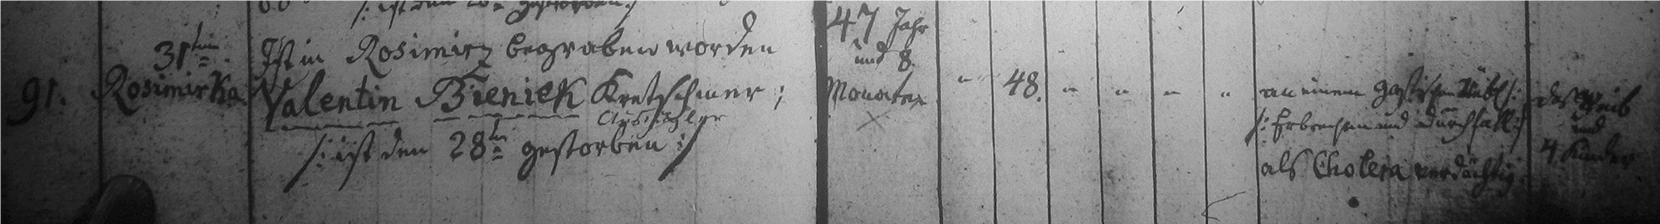 /: ist den gestorben :/
31ten Ist in Rosimirz begraben worden 47 Jahr
und 8.
91. Rosimirka Valentin Bieniek Kretschmer; Monate " 48. " " " " an einem
/: Erbrechen und Durchfall :/ das Weib
und
/: ist den 28ten gestorben :/ als Cholera verdächtig. 4 Kinder